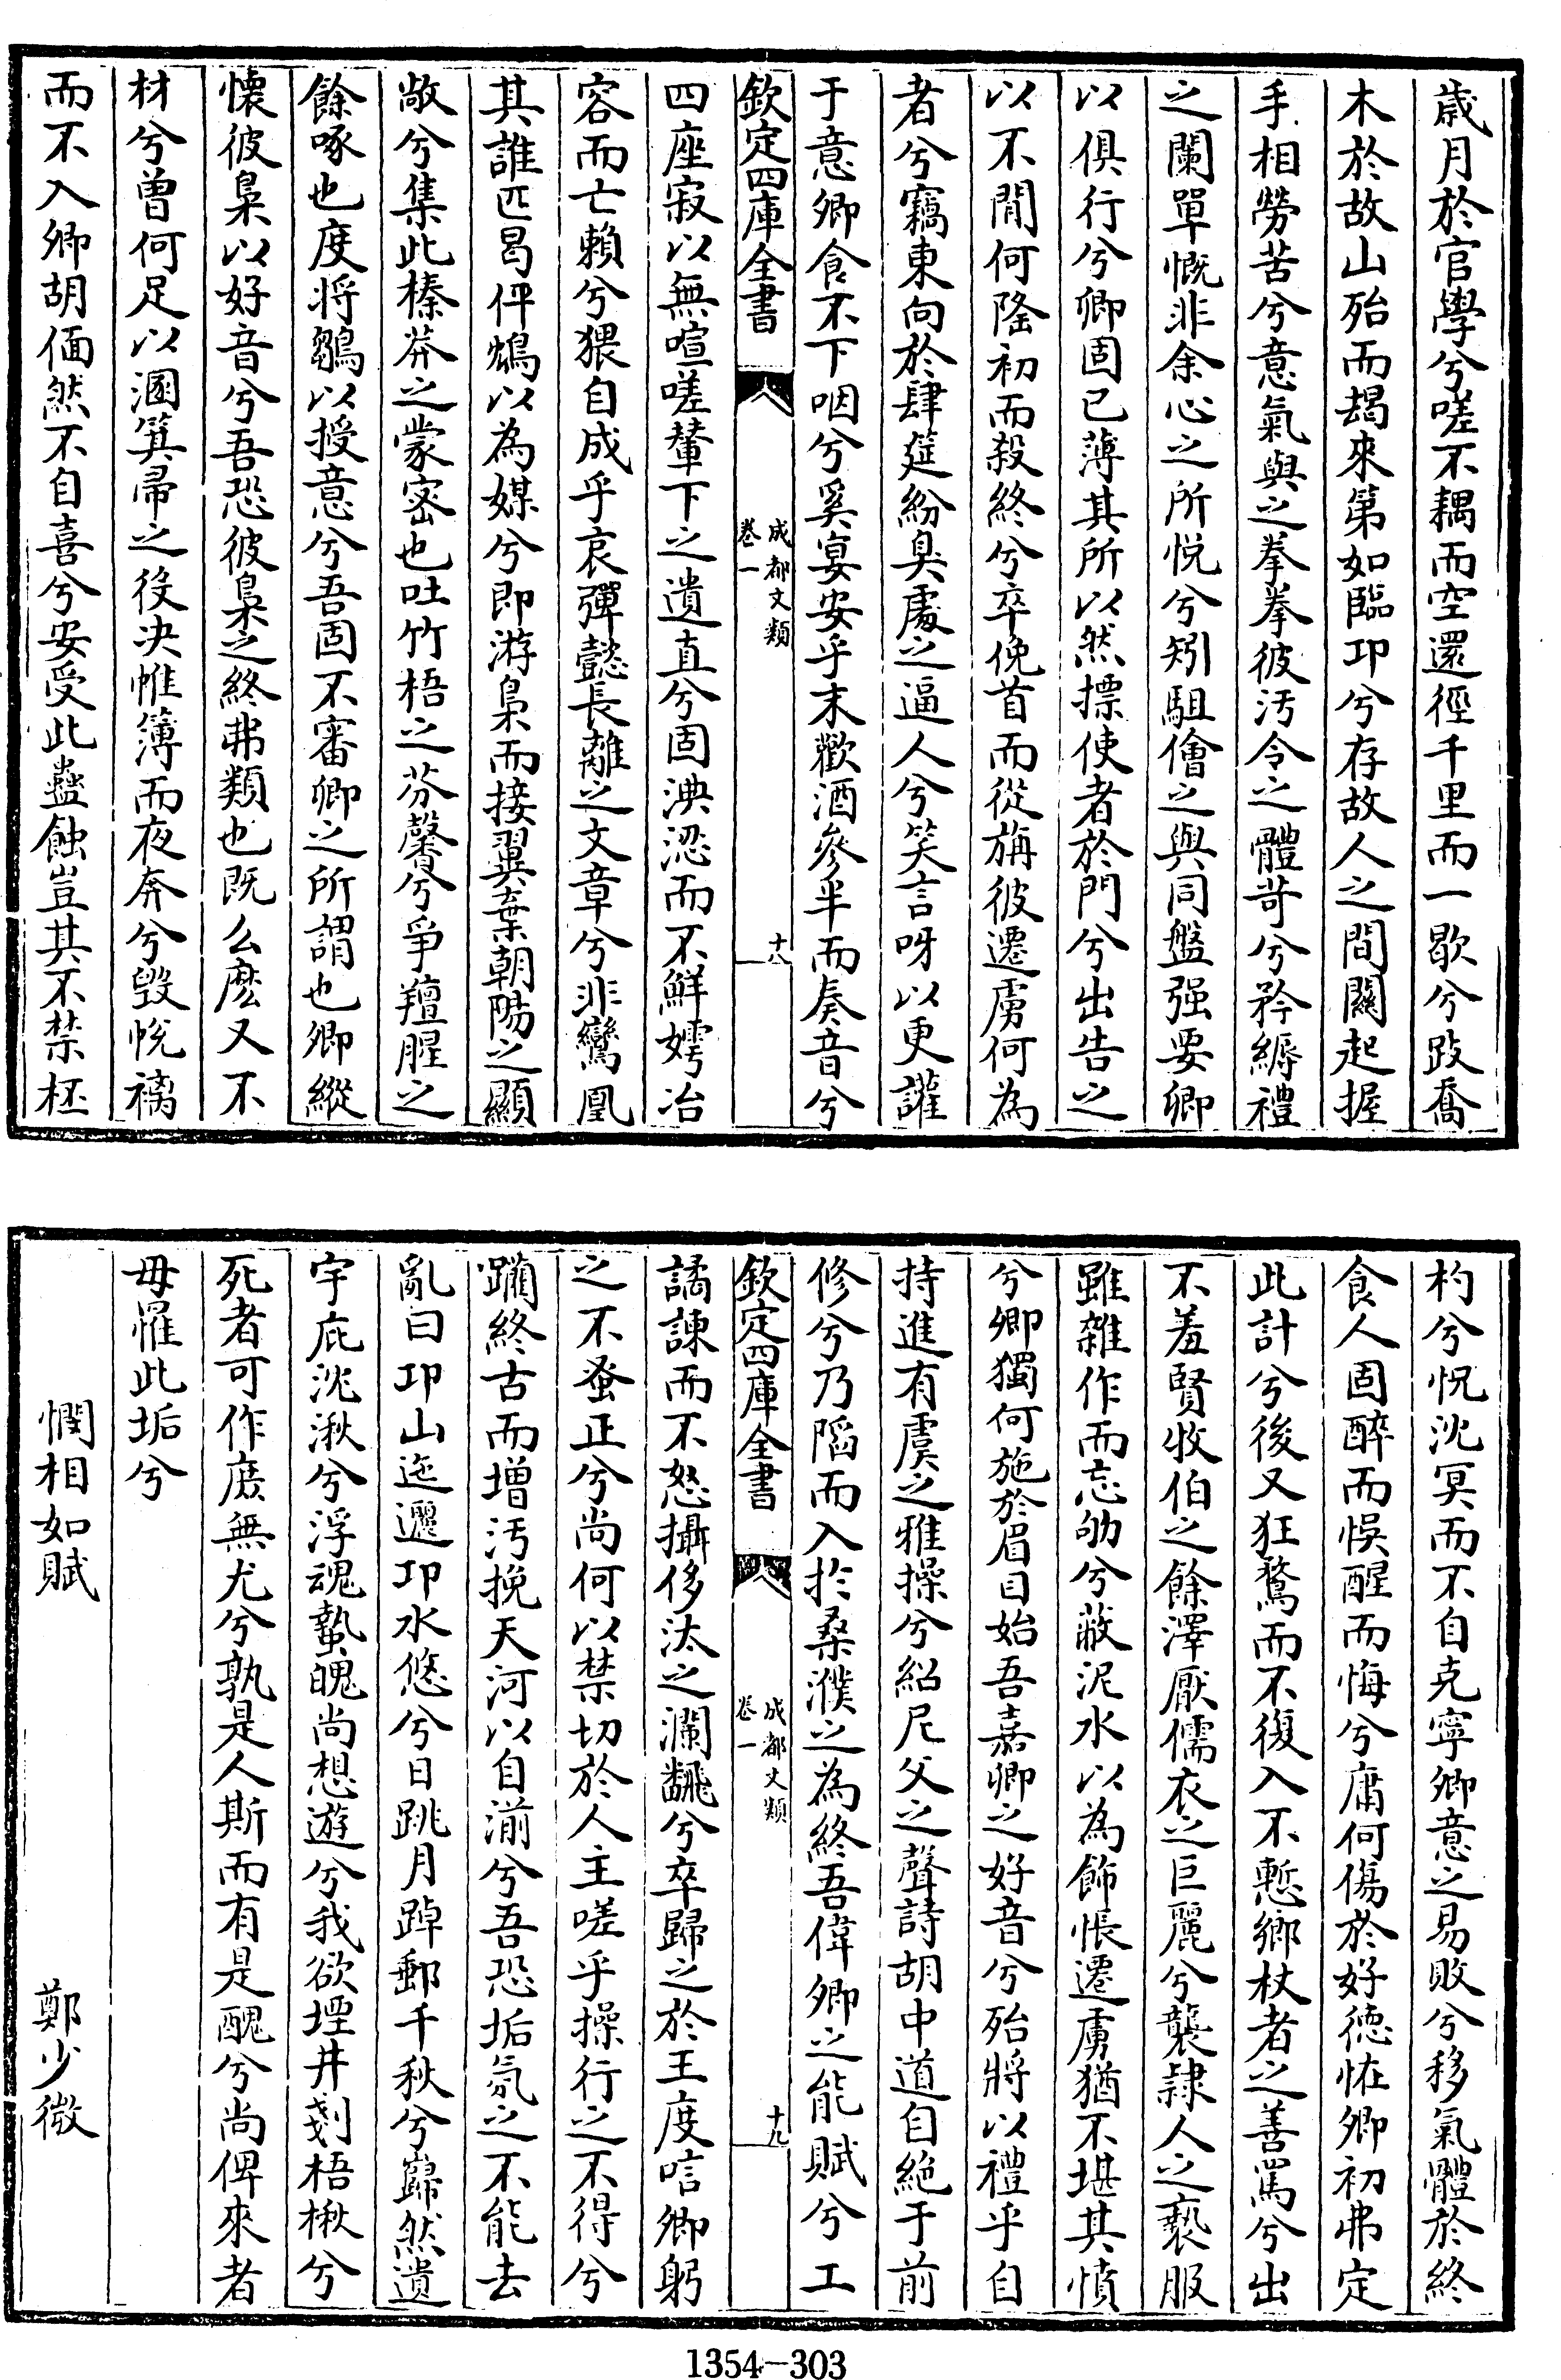 歲月於官學兮嗟不耦而空還徑千里而一歇兮跂喬
木於故山殆而朅來第如臨邛兮存故人之間關起握
手相勞苦兮意氣與之拳拳彼汚令之體苛兮矜縟禮
之闌單慨非余心之所悦兮矧駔儈之與同盤强要卿
以俱行兮卿固已薄其所以然摽使者於門兮出告之
以不閒何隆初而殺終兮卒俛首而從旃彼遷虜何為
者兮竊東向於肆筵紛臭處之逼人兮笑言呀以更讙
于意卿食不下咽兮奚宴安乎末歡酒參半而奏音兮
欽定四庫全書 成都文類 卷一 十八
四座寂以無喧嗟輦下之遺直兮固淟涊而不鮮嫮冶
容而亡賴兮猥自成乎哀彈懿長離之文章兮非鸞凰
其誰匹曷伻鴆以為媒兮即游梟而接翼棄朝陽之顯
敞兮集此榛莽之蒙密也吐竹梧之芬馨兮爭羶腥之
餘啄也度將鶵以授意兮吾固不審卿之所謂也卿縱
懷彼梟以好音兮吾恐彼梟之終弗類也既么麽又不
材兮曾何足以溷箕帚之役决帷簿而夜奔兮毁帨褵
而不入卿胡偭然不自喜兮安受此蠱蝕豈其不禁柸
杓兮怳沈冥而不自克寧卿意之易敗兮移氣體於終
食人固醉而悞醒而悔兮庸何傷於好德恠卿初弗定
此計兮後又狂鶩而不復入不慙鄉杖者之善罵兮出
不羞賢牧伯之餘澤厭儒衣之巨麗兮襲隷人之褻服
雖雜作而忘劬兮蔽泥水以為飾悵遷虜猶不堪其憤
兮卿獨何施於眉目始吾嘉卿之好音兮殆將以禮乎自
持進有虞之雅操兮紹尼父之聲詩胡中道自絶于前
修兮乃䧟而入於桑濮之為終吾偉卿之能賦兮工
欽定四庫全書 成都文類 卷一 十九
譎諫而不怒攝侈汰之瀾飜兮卒歸之於王度唁卿躬
之不蚤正兮尚何以禁切於人主嗟乎操行之不得兮
躪終古而增汚挽天河以自湔兮吾恐垢氛之不能去
亂曰邛山迤邐邛水悠兮日跳月踔郵千秋兮巋然遺
宇庇沈湫兮浮魂蟄魄尚想遊兮我欲堙井剗梧楸兮
死者可作庶無尤兮孰是人斯而有是醜兮尚俾來者
毋罹此垢兮
憫相如賦 鄭少微
1354-303